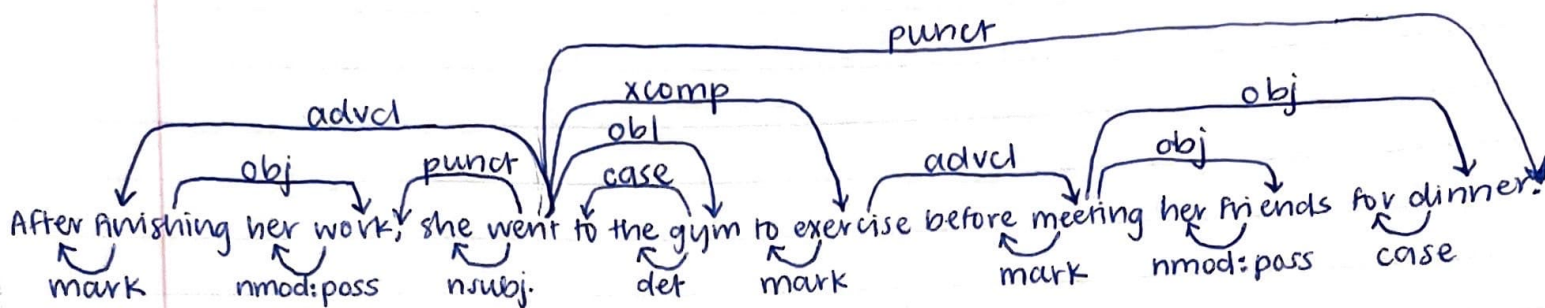 punct
advcl xcomp obj
obl
obj punct case advcl obj
After finishing her work, she went to the gym to exercise before meeting her friends for dinner.
mark nmod:poss nsubj. det mark mark nmod:poss case